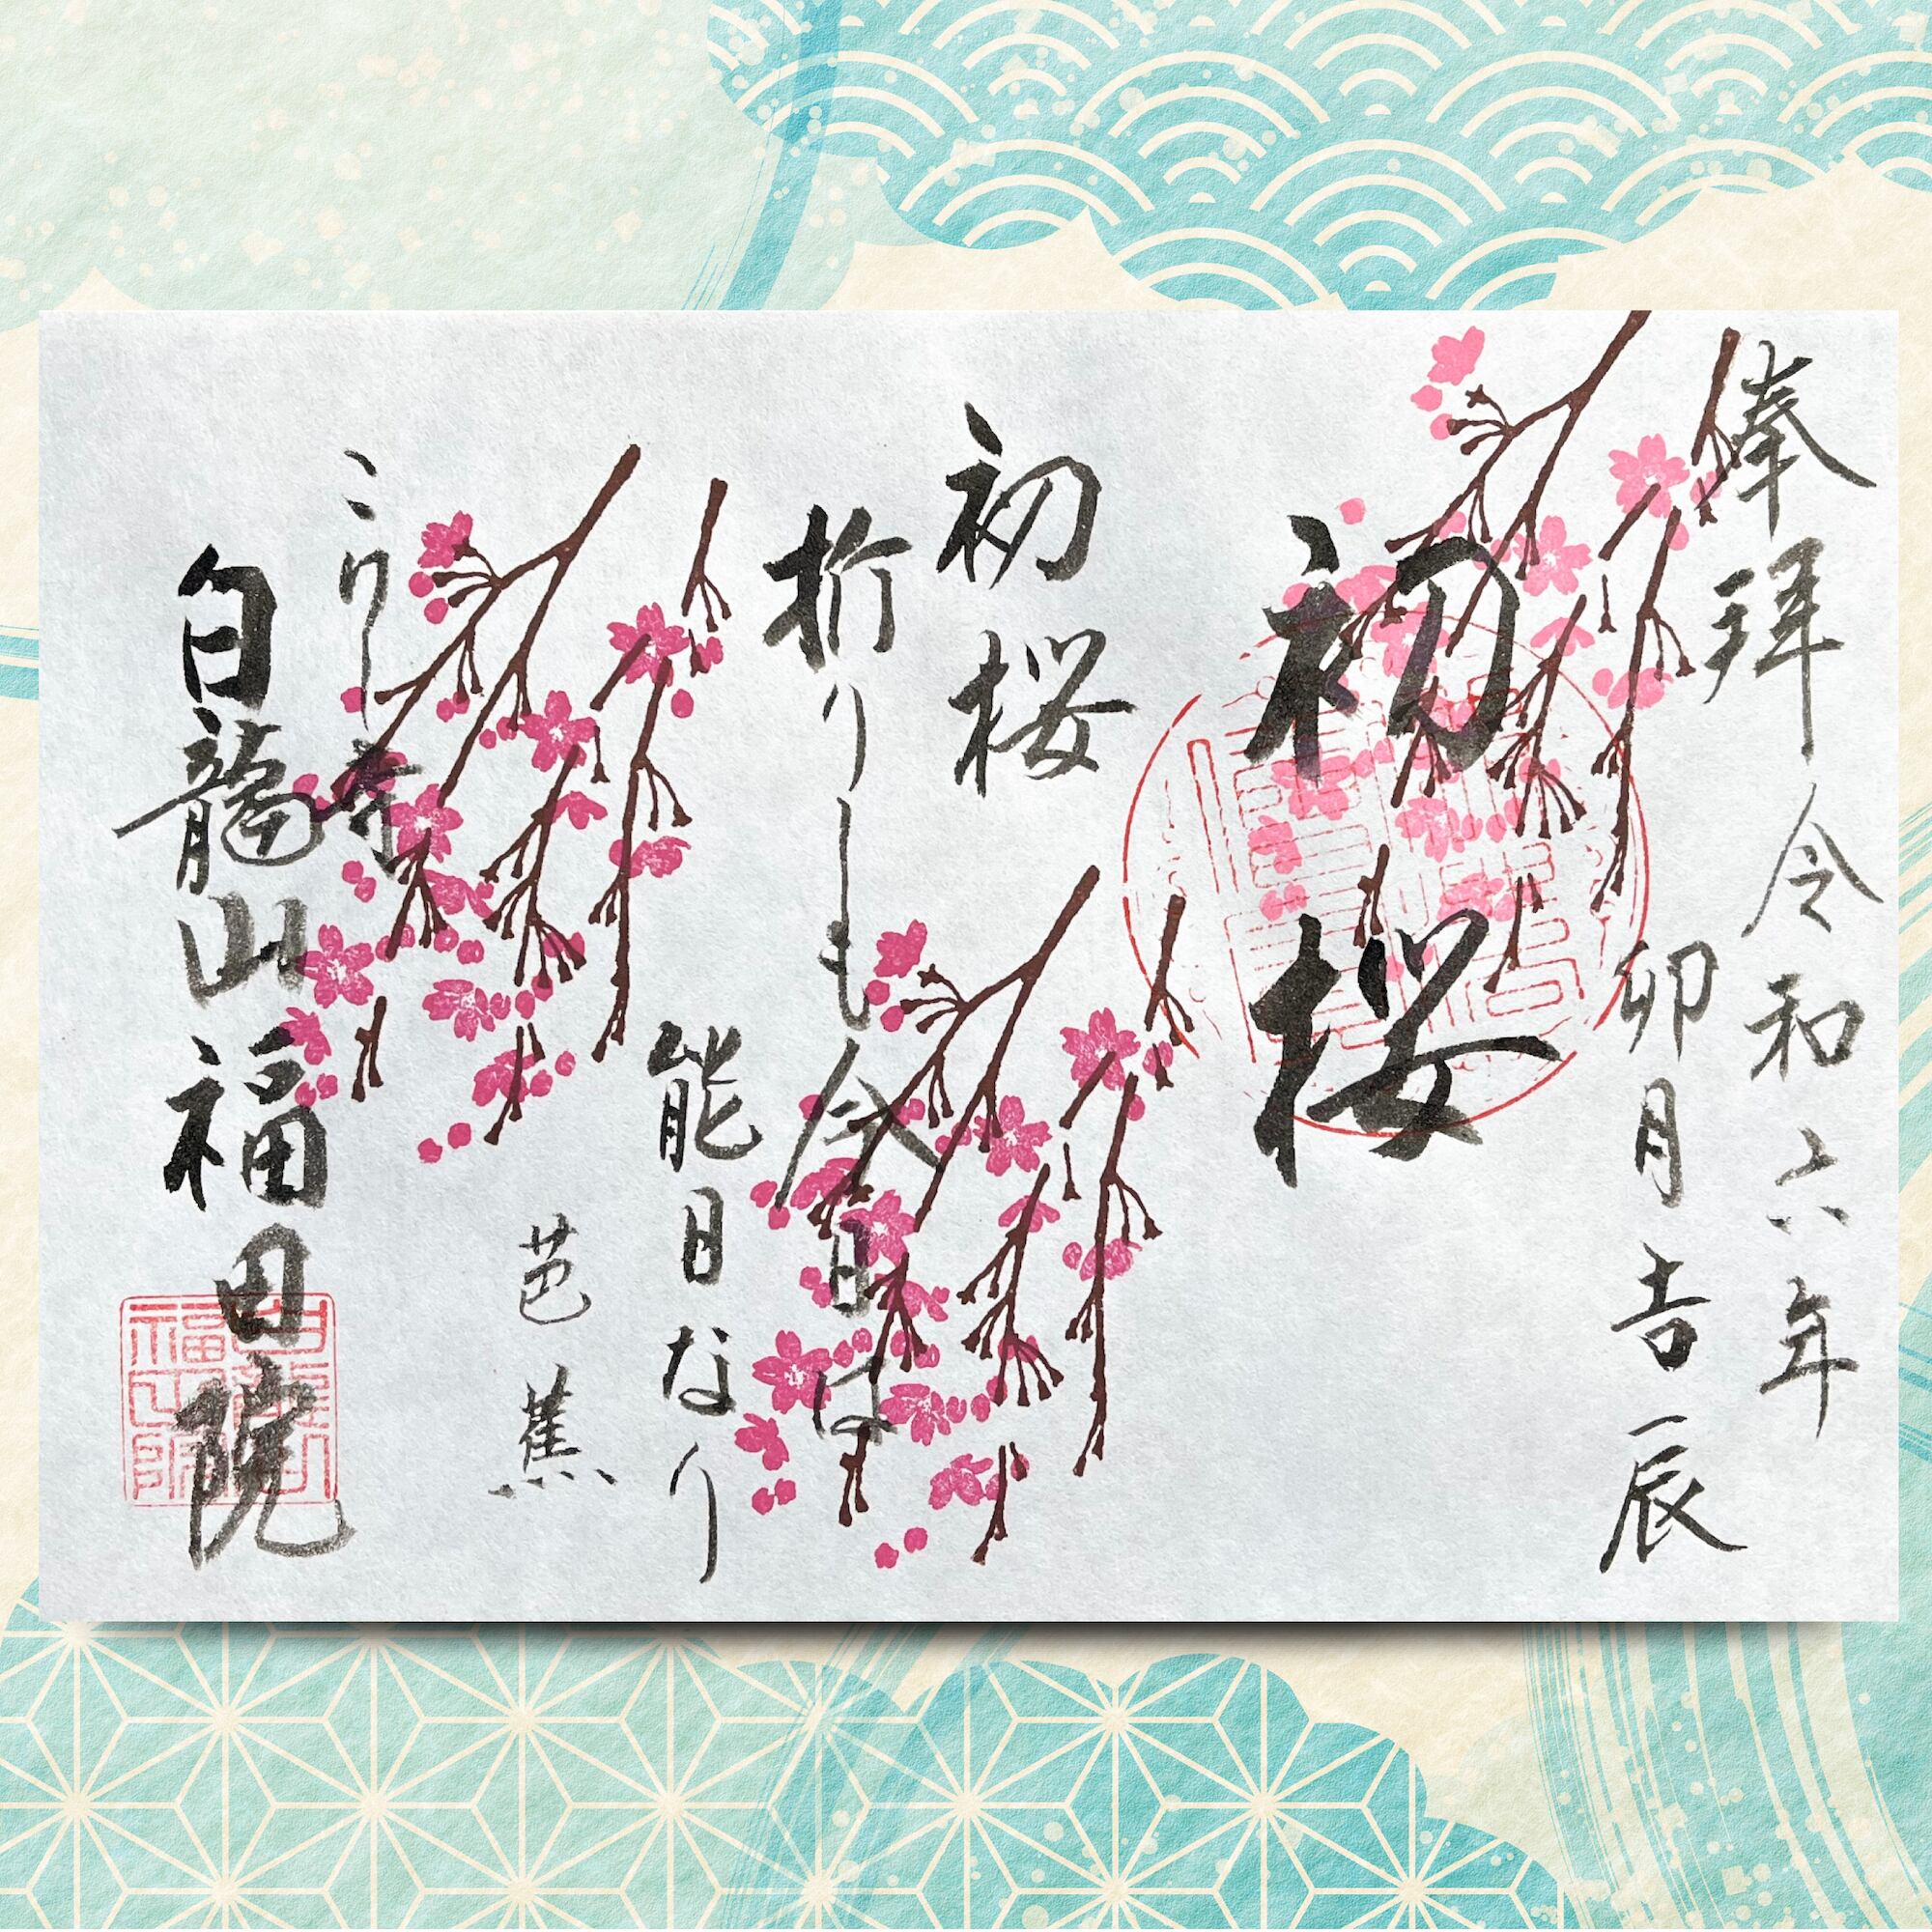 奉拝 令和六年
卯月吉辰
初桜
初桜
折りしも今日は
能日なり
芭蕉
こけし寺
白龍山福田院